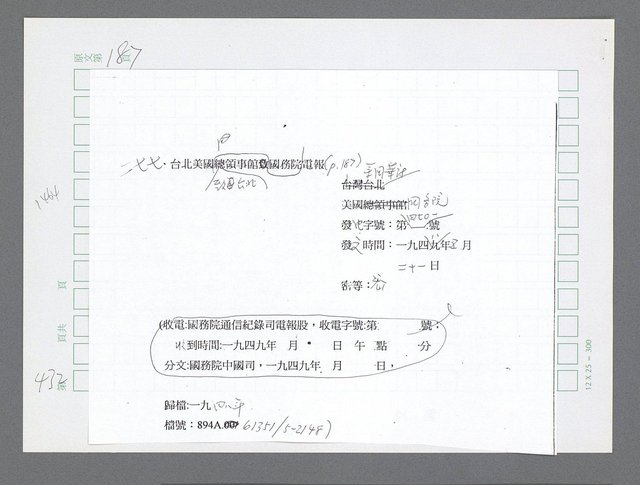 原文第187頁
二七七、台北美國總領事館致國務院電報(p.187)
台灣台北
美國總領事館 國務院
發文字號：第 號
發文時間：一九四九年 月
二十一日
密等：密
(收電:國務院通信紀錄司電報股，收電字號:第 號；
收到時間:一九四九年 月 日 午 點 分
分文:國務院中國司，一九四九年 月 日，
歸檔:一九四八年
檔號：894A.00 61351/5-2148)
頁
頁共
第432
12 X 25 = 300